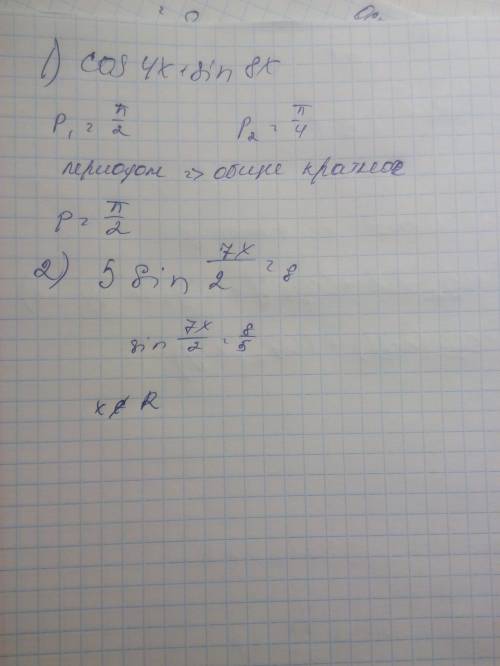 1) cos 4x + sin 8x
P₁ = π/2 P₂ = π/4
периодом => общее кратное
P = π/2
2) 5 sin 7x/2 = 8
sin 7x/2 = 8/5
x ∉ R